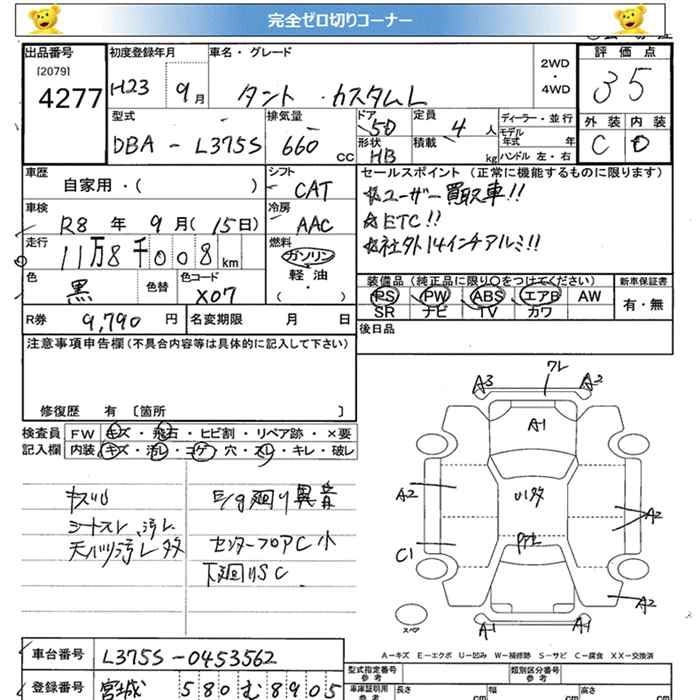 完全ゼロ切りコーナー
出品番号 初度登録年月 車名・グレード 評価点
[2079] 2WD・4WD
4277 H23 9月 タント・カスタムL 35
型式 排気量 ドア 定員 ディーラー・並行 外装 内装
DBA - L375S 660 CC 5D 4人 モデル年式 年 C D
形状 HB 積載 kg ハンドル 左・右
車歴 シフト セールスポイント (正常に機能するものに限ります)
自家用・( ) CAT ☆ユーザー買取車!!
車検 冷房 ☆ETC!!
R8年 9月(15日) AAC ☆社外14インチアルミ!!
走行 燃料
11万8千008km ガソリン
軽油
・( )
色 色替 色コード 装備品 (純正品に限り○をつけてください) 新車保証書
黒 X07 PS PW ABS エアB AW 有・無
SR ナビ TV カワ
R券 9,790円 名変期限 月 日 後日品
注意事項申告欄(不具合内容等は具体的に記入して下さい)
修復歴 有 [箇所 ]
検査員 FW キズ・飛石・ヒビ割・リペア跡・×要
記入欄 内装 キズ・汚レ・コゲ・穴・スレ・キレ・破レ
E/g廻り異音
シートスレ、汚レ
センターフロアC小
天バリ汚レ多
下廻りSC
A3 ワレ A2
A1
A2
A2
C1
A2
スペア
A1 A1
A-キズ E-エクボ U-凹み W-補修跡 S-サビ C-腐食 XX-交換済
車台番号 L375S-0453562 型式指定番号 参考 類別区分番号 参考
登録番号 宮城 580 む 8905 車庫証明用 参考 長さ cm 幅 cm 高さ cm